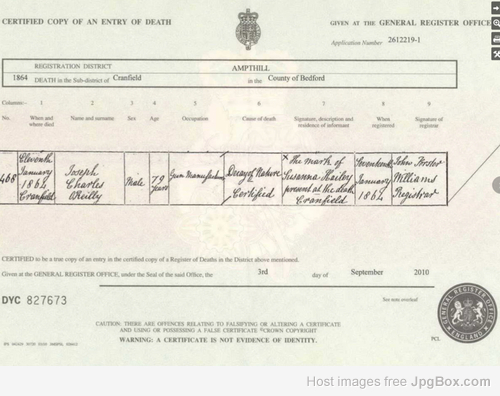 CERTIFIED COPY OF AN ENTRY OF DEATH
GIVEN AT THE GENERAL REGISTER OFFICE
Application Number 2612219-1
REGISTRATION DISTRICT AMPTHILL
1864 DEATH in the Sub-district of Cranfield in the County of Bedford
Columns:- 1 2 3 4 5 6 7 8 9
No. When and where died Name and surname Sex Age Occupation Cause of death Signature, description and residence of informant When registered Signature of registrar
468 Eleventh January 1864 Cranfield Joseph Charles Reilly Male 79 years Gun Manufacturer Decay of Nature Certified X The mark of Susanna present at the death Cranfield Seventeenth January 1864 John Williams Registrar
CERTIFIED to be a true copy of an entry in the certified copy of a Register of Deaths in the District above mentioned.
Given at the GENERAL REGISTER OFFICE, under the Seal of the said Office, the 3rd day of September 2010
DYC 827673
See note overleaf
CAUTION: THERE ARE OFFENCES RELATING TO FALSIFYING OR ALTERING A CERTIFICATE
AND USING OR POSSESSING A FALSE CERTIFICATE ©CROWN COPYRIGHT
WARNING: A CERTIFICATE IS NOT EVIDENCE OF IDENTITY.
GENERAL REGISTER OFFICE ENGLAND
Host images free JpgBox.com